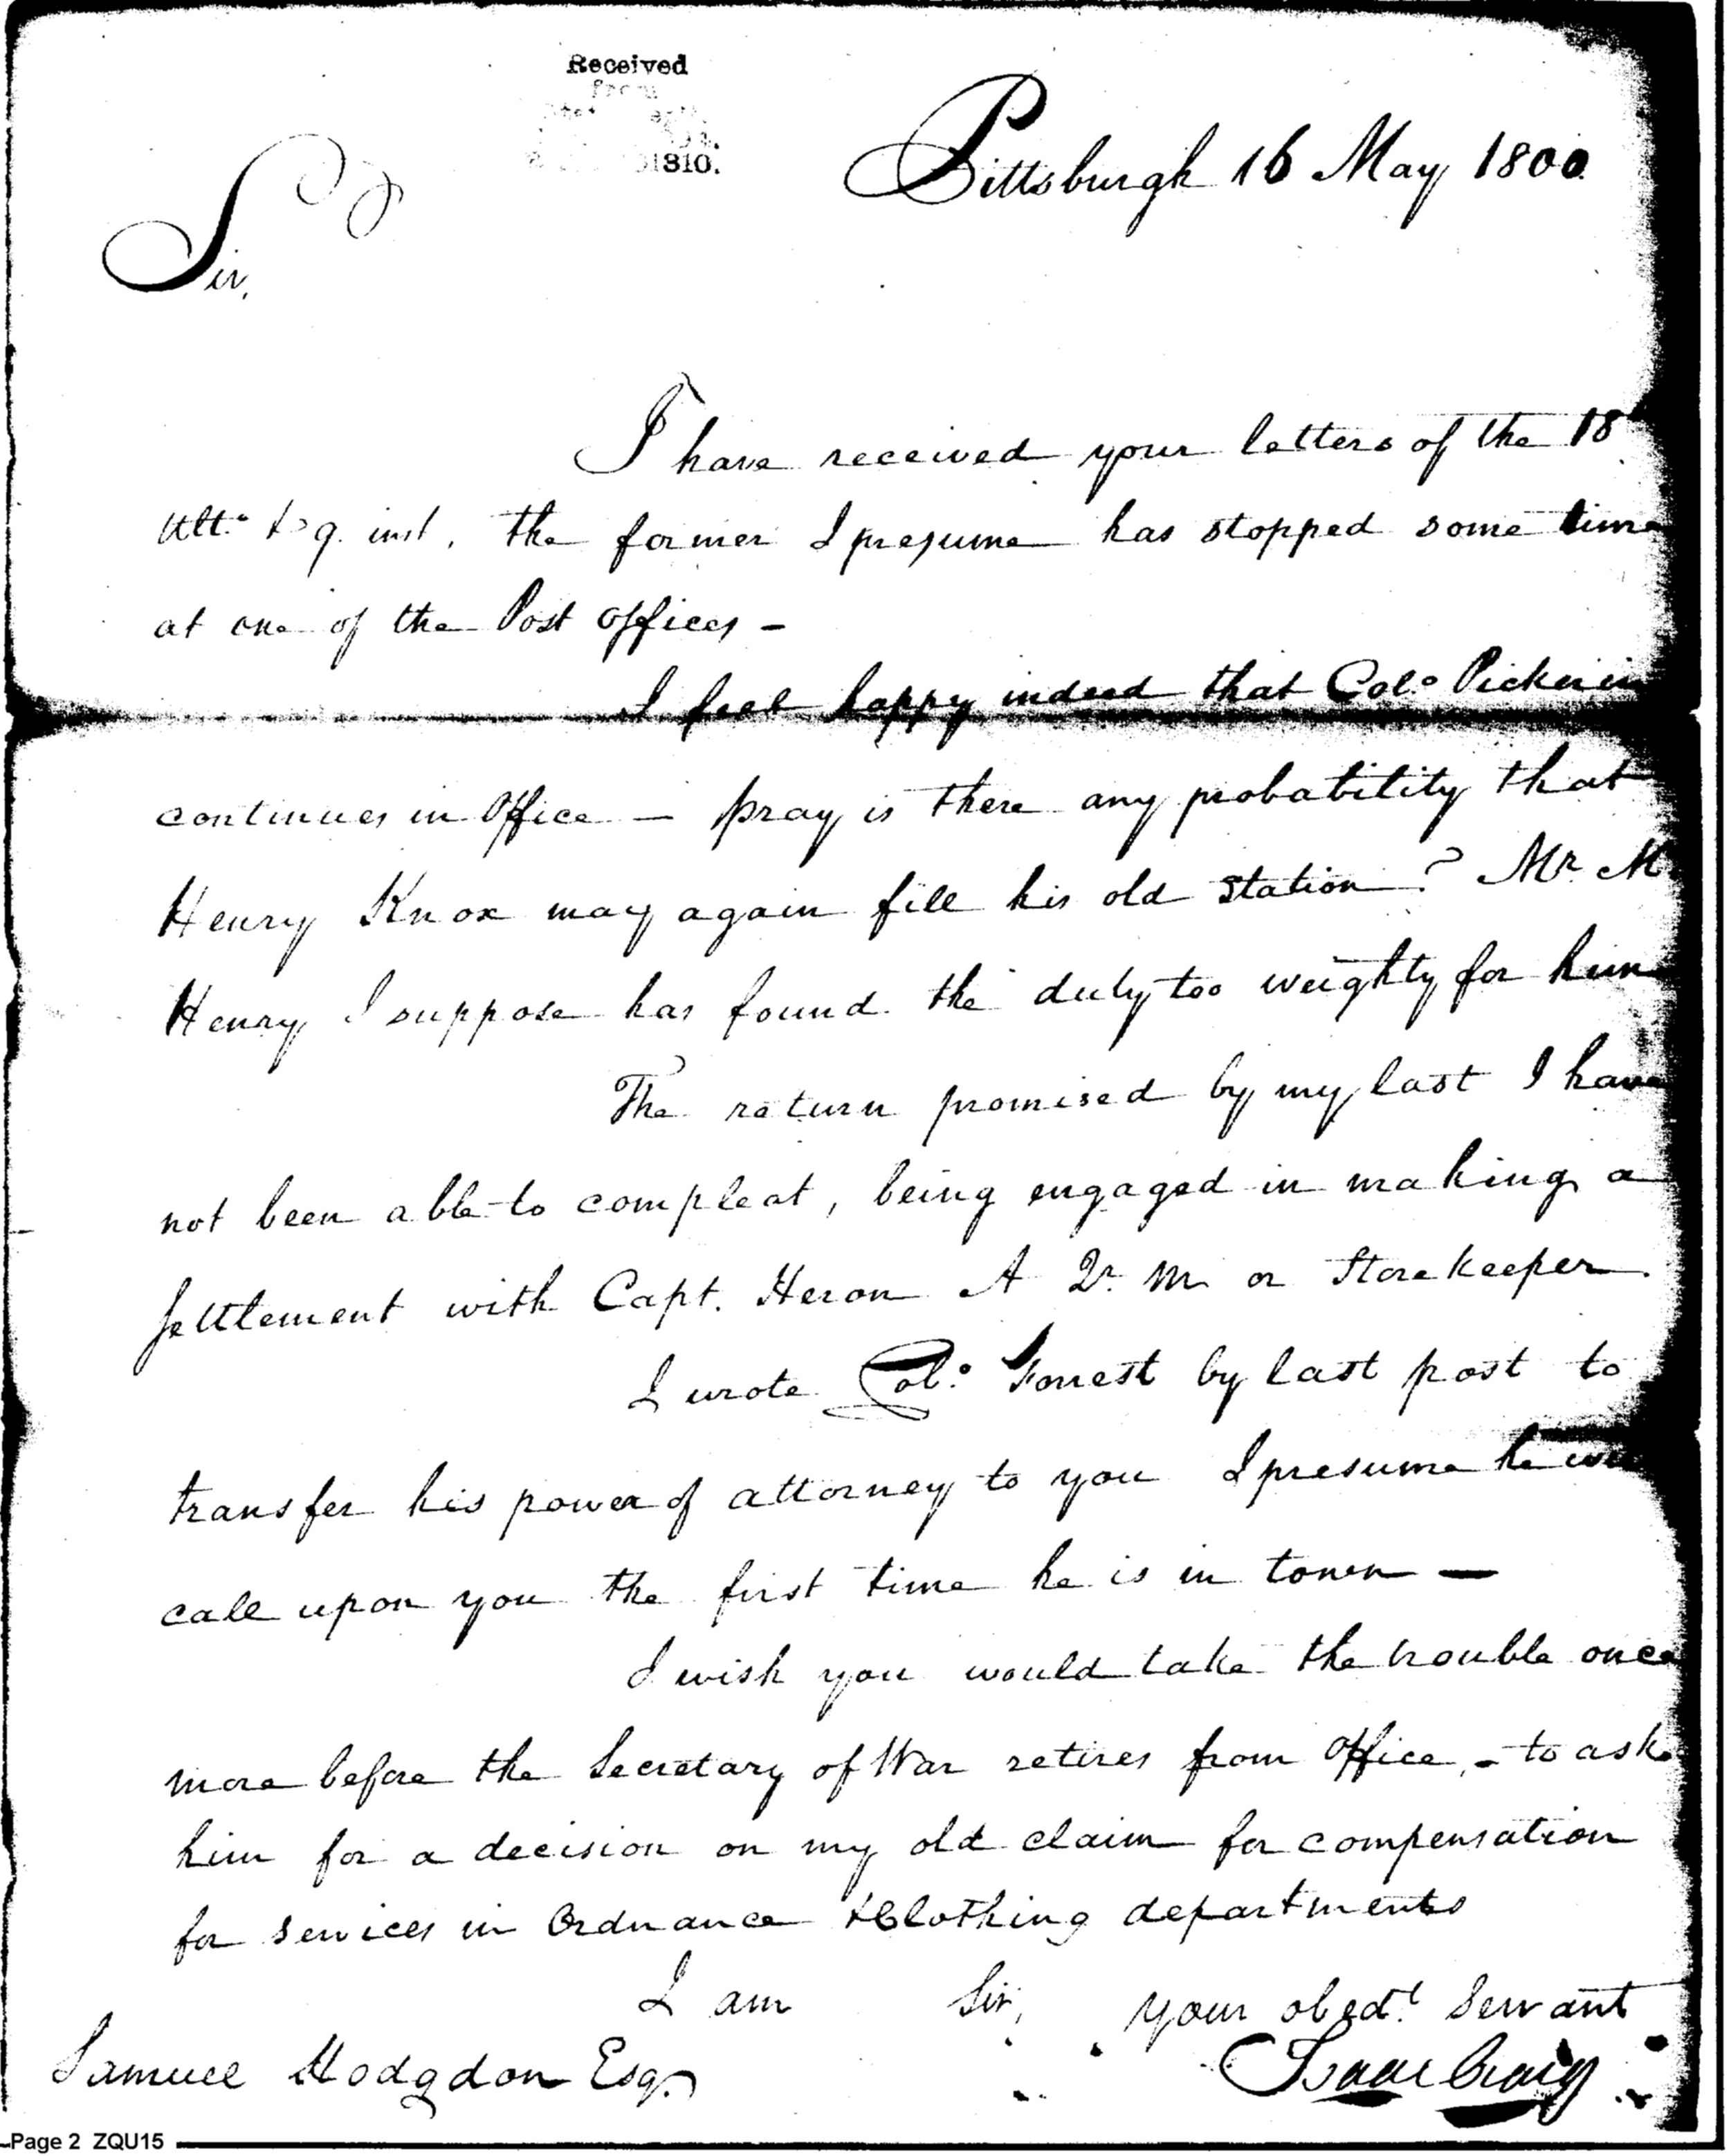 Received
from
1310.
Pittsburgh 16 May 1800
Sir,
I have received your letters of the 18
Ulto. & 9. inst, the former I presume has stopped some time
at one of the Post Offices –
I feel happy indeed that Colo Pickerin
continues in Office – pray is there any probability that
Henry Knox may again fill his old Station? Mr. M
Henry I suppose has found the duty too weighty for him
The return promised by my last I have
not been able to compleat, being engaged in making a
settlement with Capt. Heron A Qr. M or Storekeeper.
I wrote Colo: Forrest by last post to
transfer his power of attorney to you I presume he
call upon you the first time he is in town —
I wish you would take the trouble once
more before the Secretary of War retires from Office, – to ask
him for a decision on my old claim for compensation
for services in Ordnance & Clothing departments
I am Sir, your obedt. Servant
Samuel Hodgdon Esqr. Isaac Craig
Page 2 ZQU15